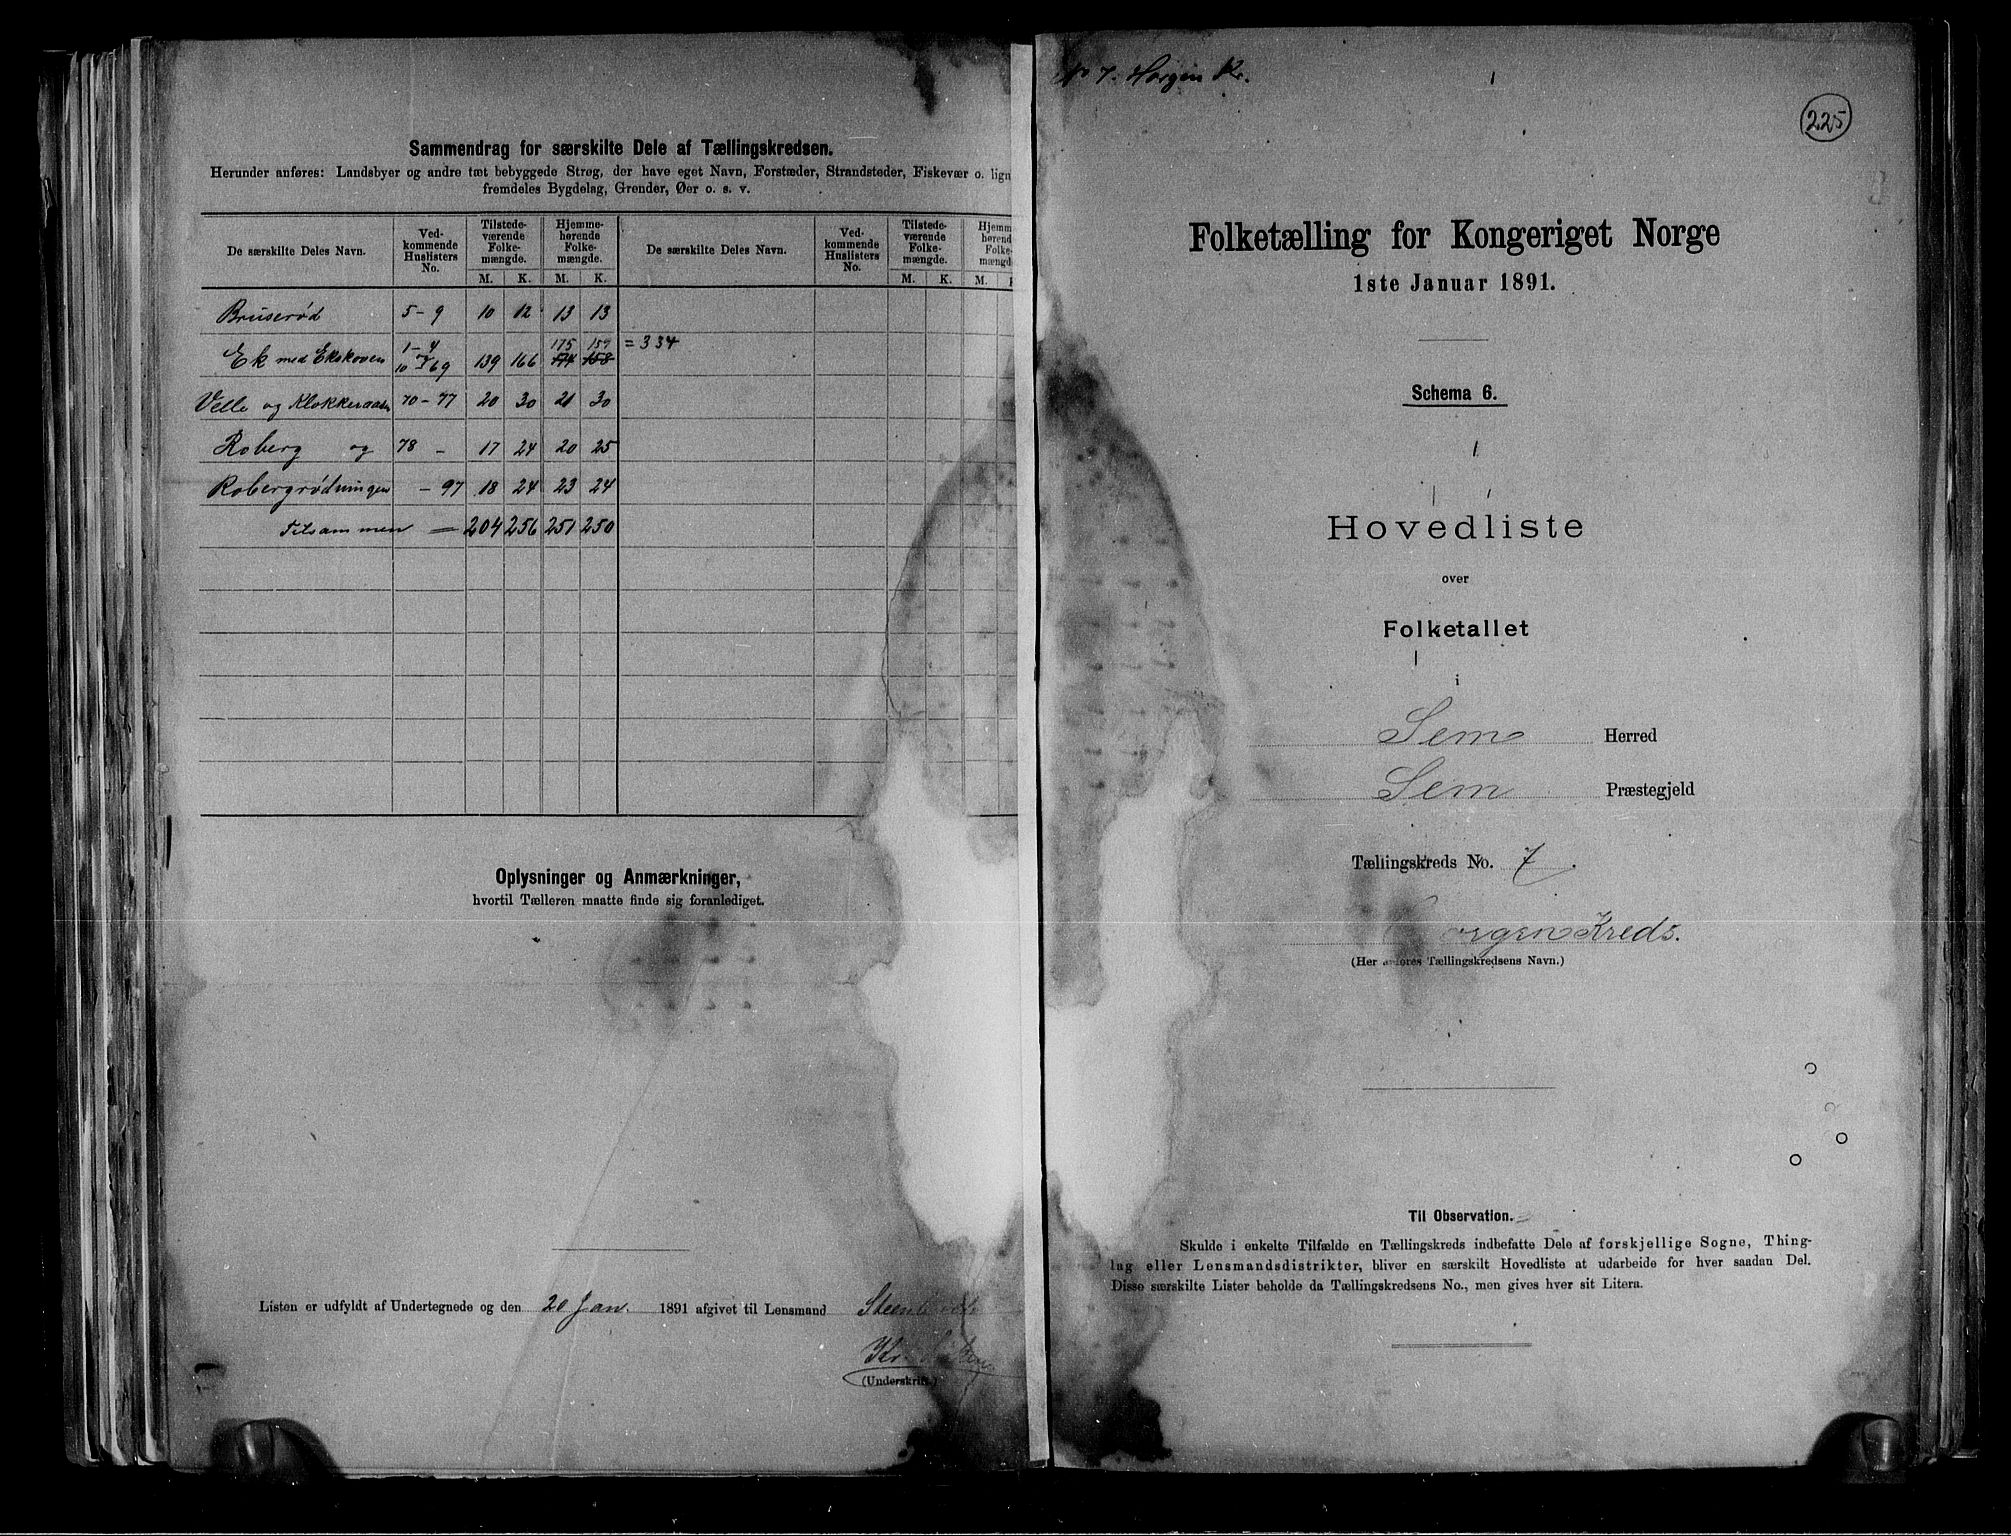 Sammendrag for særskilte Dele af Tællingskredsen.
Herunder anføres: Landsbyer og andre tæt bebyggede Strøg, der have eget Navn, Forstæder, Strandsteder, Fiskevær o. lign
fremdeles Bygdelag, Grender, Øer o. s. v.
De særskilte Deles Navn. Ved-kommende Huslisters No. Tilstede-værende Folke-mængde. Hjemme-hørende Folke-mængde. De særskilte Deles Navn. Ved-kommende Huslisters No. Tilstede-værende Folke-mængde. Hjemm hørend Folke mængde
M. K. M. K. M. K. M.
Bruserød 5-9 10 12 13 13
175 159 = 334
Ek med Ekskoven 1-4 og 10-69 139 166 174 158
Velle og Klokkeraasen 70-77 20 30 21 30
Roberg og 78 - 17 24 20 25
Robergrødningen - 97 18 24 23 24
Tilsammen = 204 256 251 250
Oplysninger og Anmærkninger,
hvortil Tælleren maatte finde sig foranlediget.
Listen er udfyldt af Undertegnede og den 20 Jan. 1891 afgivet til Lensmand
Kr.
(Underskrift.)
No 7. Horgen Kr.
225
Folketælling for Kongeriget Norge
1ste Januar 1891.
Schema 6.
Hovedliste
over
Folketallet
i
Sem Herred
Sem Præstegjeld
Tællingskreds No. 7.
orgen Kreds.
(Her anføres Tællingskredsens Navn.)
Til Observation.
Skulde i enkelte Tilfælde en Tællingskreds indbefatte Dele af forskjellige Sogne, Thing-
lag eller Lensmandsdistrikter, bliver en særskilt Hovedliste at udarbeide for hver saadan Del.
Disse særskilte Lister beholde da Tællingskredsens No., men gives hver sit Litera.